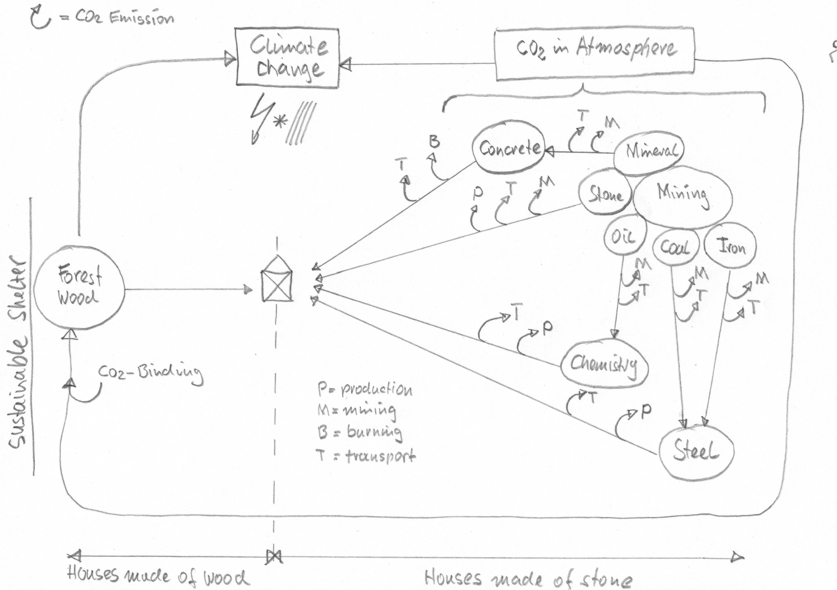 = CO2 Emission
Climate
change
CO2 in Atmosphere
T
M
B
T
Concrete
Mineral
P
T
M
Stone
Mining
Oil
Coal
Iron
Forest
Wood
M
T
M
T
M
T
T
P
Chemistry
CO2-Binding
P = production
M = mining
B = burning
T = transport
T
P
Steel
Sustainable Shelter
Houses made of wood
Houses made of stone